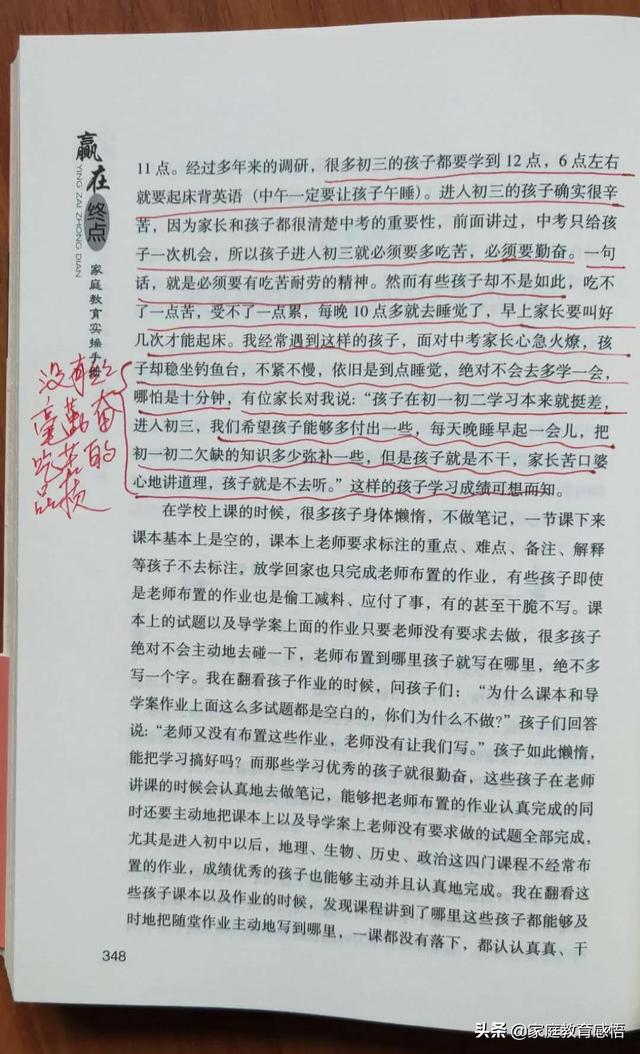 赢在终点
YING ZAI ZHONG DIAN
家庭教育实操手
11点。经过多年来的调研，很多初三的孩子都要学到12点，6点左右
就要起床背英语（中午一定要让孩子午睡）。进入初三的孩子确实很辛
苦，因为家长和孩子都很清楚中考的重要性，前面讲过，中考只给孩
子一次机会，所以孩子进入初三就必须要多吃苦，必须要勤奋。一句
话，就是必须要有吃苦耐劳的精神。然而有些孩子却不是如此，吃不
了一点苦，受不了一点累，每晚10点多就去睡觉了，早上家长要叫好
几次才能起床。我经常遇到这样的孩子，面对中考家长心急火燎，孩
子却稳坐钓鱼台，不紧不慢，依旧是到点睡觉，绝对不会去多学一会，
哪怕是十分钟，有位家长对我说：“孩子在初一初二学习本来就挺差，
进入初三，我们希望孩子能够多付出一些，每天晚睡早起一会儿，把
初一初二欠缺的知识多少弥补一些，但是孩子就是不干，家长苦口婆
心地讲道理，孩子就是不去听。”这样的孩子学习成绩可想而知。
没有
毫勤奋
吃苦的
品质
在学校上课的时候，很多孩子身体懒惰，不做笔记，一节课下来
课本基本上是空的，课本上老师要求标注的重点、难点、备注、解释
等孩子不去标注，放学回家也只完成老师布置的作业，有些孩子即使
是老师布置的作业也是偷工减料、应付了事，有的甚至干脆不写。课
本上的试题以及导学案上面的作业只要老师没有要求去做，很多孩子
绝对不会主动地去碰一下，老师布置到哪里孩子就写在哪里，绝不多
写一个字。我在翻看孩子作业的时候，问孩子们：“为什么课本和导
学案作业上面这么多试题都是空白的，你们为什么不做？”孩子们回答
说：“老师又没有布置这些作业，老师没有让我们写。”孩子如此懒惰，
能把学习搞好吗？而那些学习优秀的孩子就很勤奋，这些孩子在老师
讲课的时候会认真地去做笔记，能够把老师布置的作业认真完成的同
时还要主动地把课本上以及导学案上老师没有要求做的试题全部完成，
尤其是进入初中以后，地理、生物、历史、政治这四门课程不经常布
置的作业，成绩优秀的孩子也能够主动并且认真地完成。我在翻看这
些孩子课本以及作业的时候，发现课程讲到了哪里这些孩子都能够及
时地把随堂作业主动地写到哪里，一课都没有落下，都认认真真、干
348
头条 @家庭教育感悟